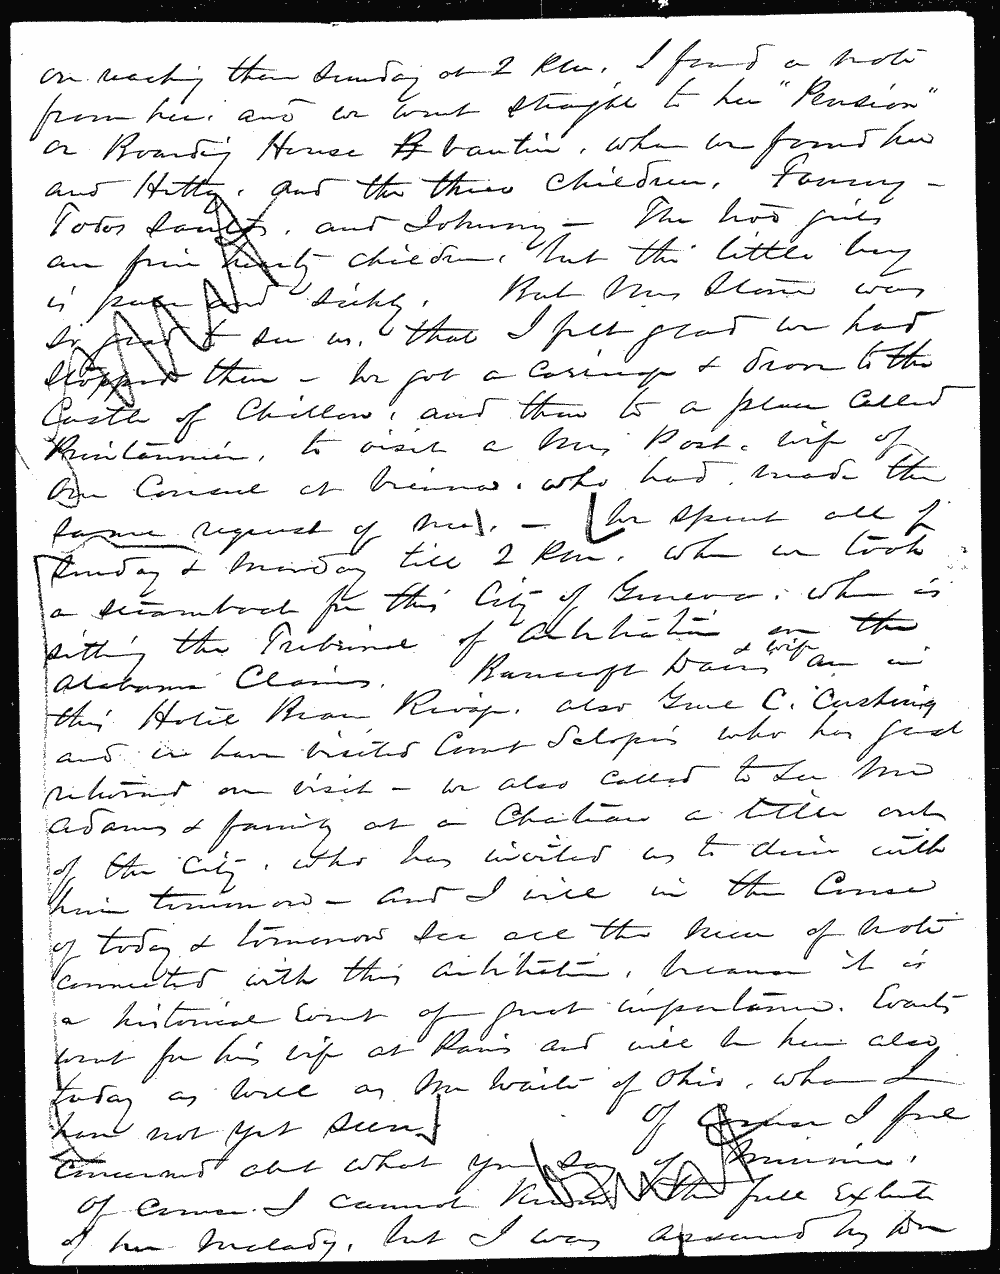 on reaching there Sunday at 2 P.M. I found a note
from her. and we went straight to her "Pension"
or Boarding House, where we found her
and Hetty, and the three children. Fanny -
Todos Santos, and Johnny - The two girls
are fine hearty children, but the little boy
is puny and sickly. But Mrs Stone was
so glad to see us, that I felt glad we had
stopped there - We got a carriage & drove to the
Castle of Chillon, and then to a place called
to visit a Mrs Post, wife of
our Consul at Vienna, who had made the
same request of me. - We spent all of
Sunday & Monday till 2 P.M. when we took
a steamboat for this City of Geneva, where is
sitting the Tribunal of Arbitration on the
Alabama Claims. Bancroft Davis & wife are in
this Hotel Beau Rivage. also Genl C. Cushing
and we have visited Count Sclopis who has just
returned our visit - We also called to see Mr
Adams & family at a Chateau a little out
of the City, who has invited us to dine with
him tomorrow - and I will in the Course
of today & tomorrow see all the men of note
connected with this Arbitration, because it is
a historical Event of great importance. Evarts
went for his wife at Paris and will be here also
today as well as Mr Waite of Ohio, whom I
have not yet seen. Of course I feel
concerned abt what you say of Minnie.
Of course I cannot know the full Extent
of her malady, but I was assured by Dr